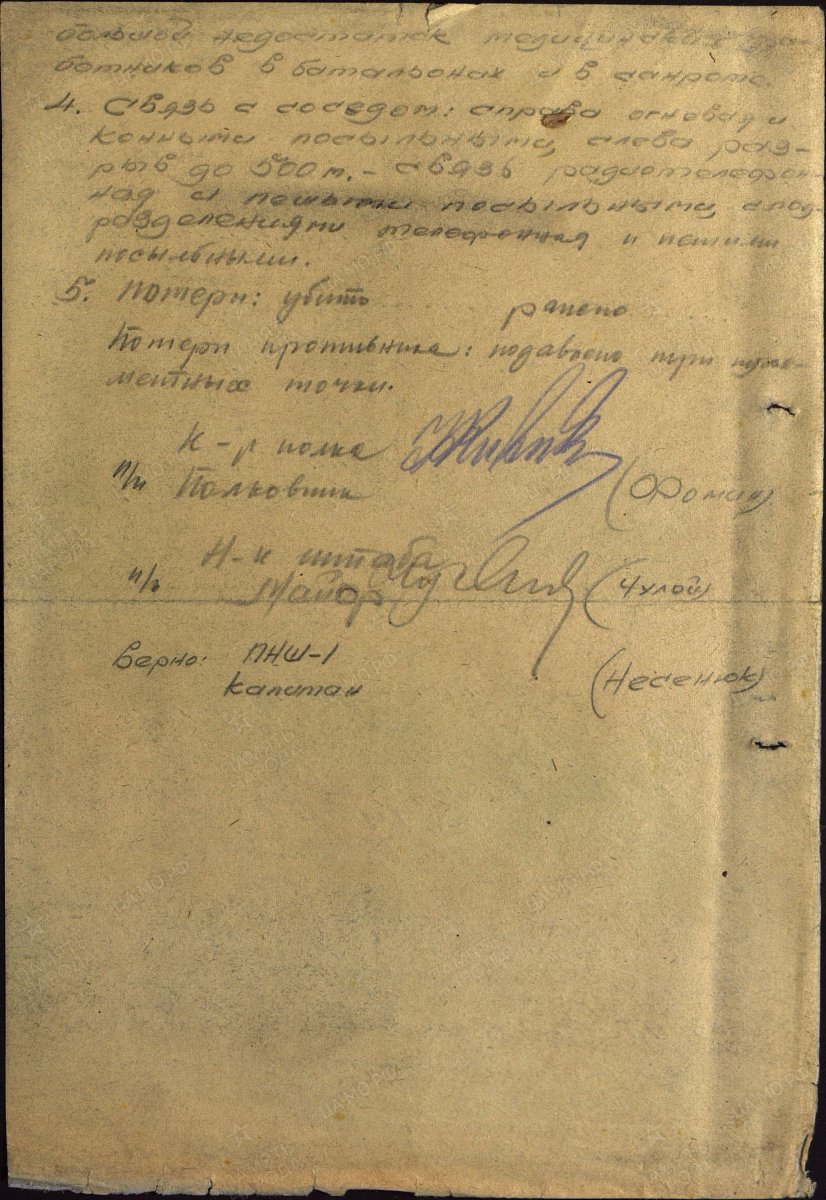 большой недостаток медицинских
ботников в батальонах и в санроте.
4. Связь с соседом: справа огневая и
конными посыльными, слева раз-
рыв до 500 м. - связь радиотелефон-
ная и пешими посыльными, с под-
разделениями телефонная и пешими
посыльными.
5. Потери: убито ранено
Потери противника: подавлено три пуле-
метных точки.
К-р полка
п/п Полковник (Фомин)
Н-к штаба
п/п Майор (Чулой)
Верно: ПНШ-1
Капитан (Несенюк)